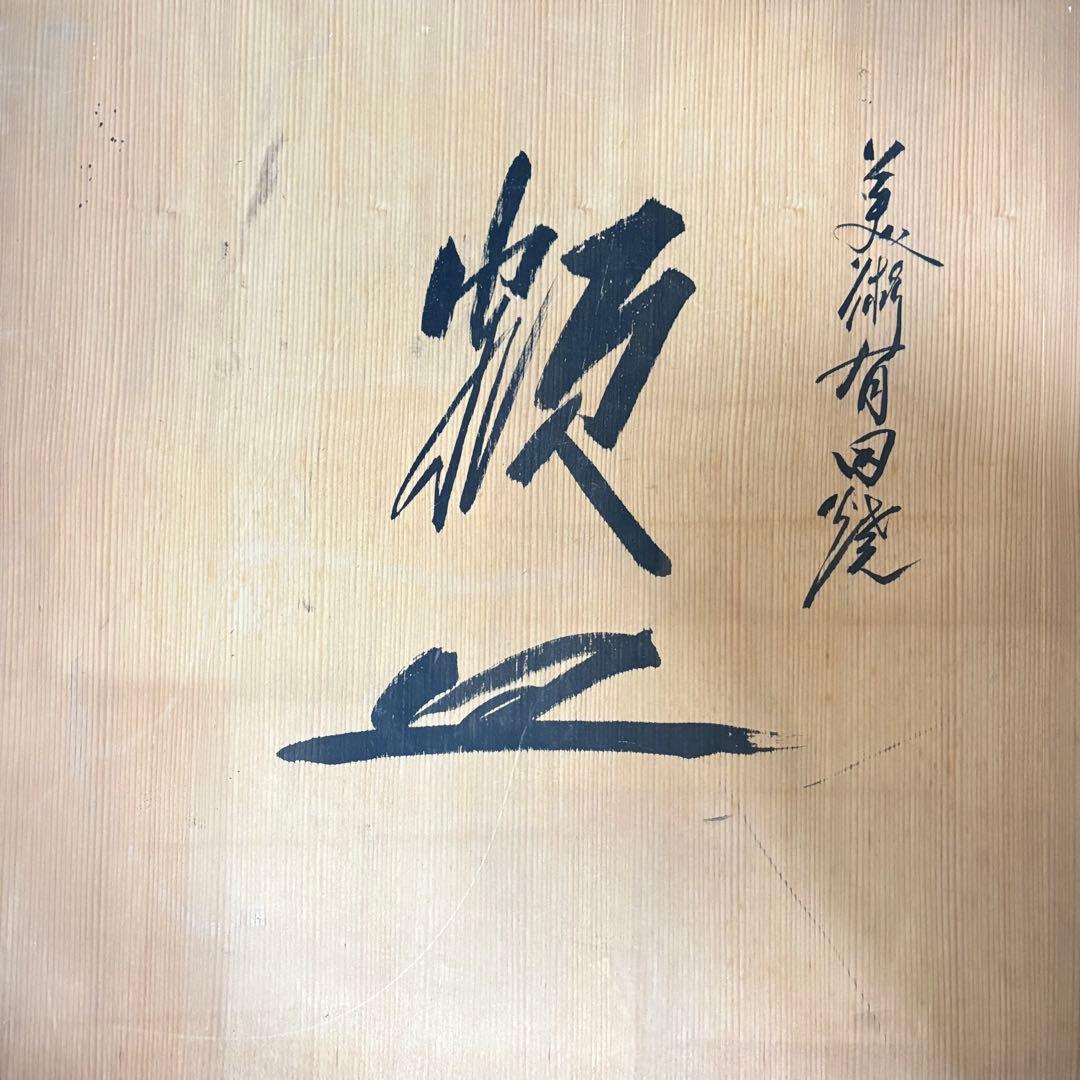 美術有田焼
額皿